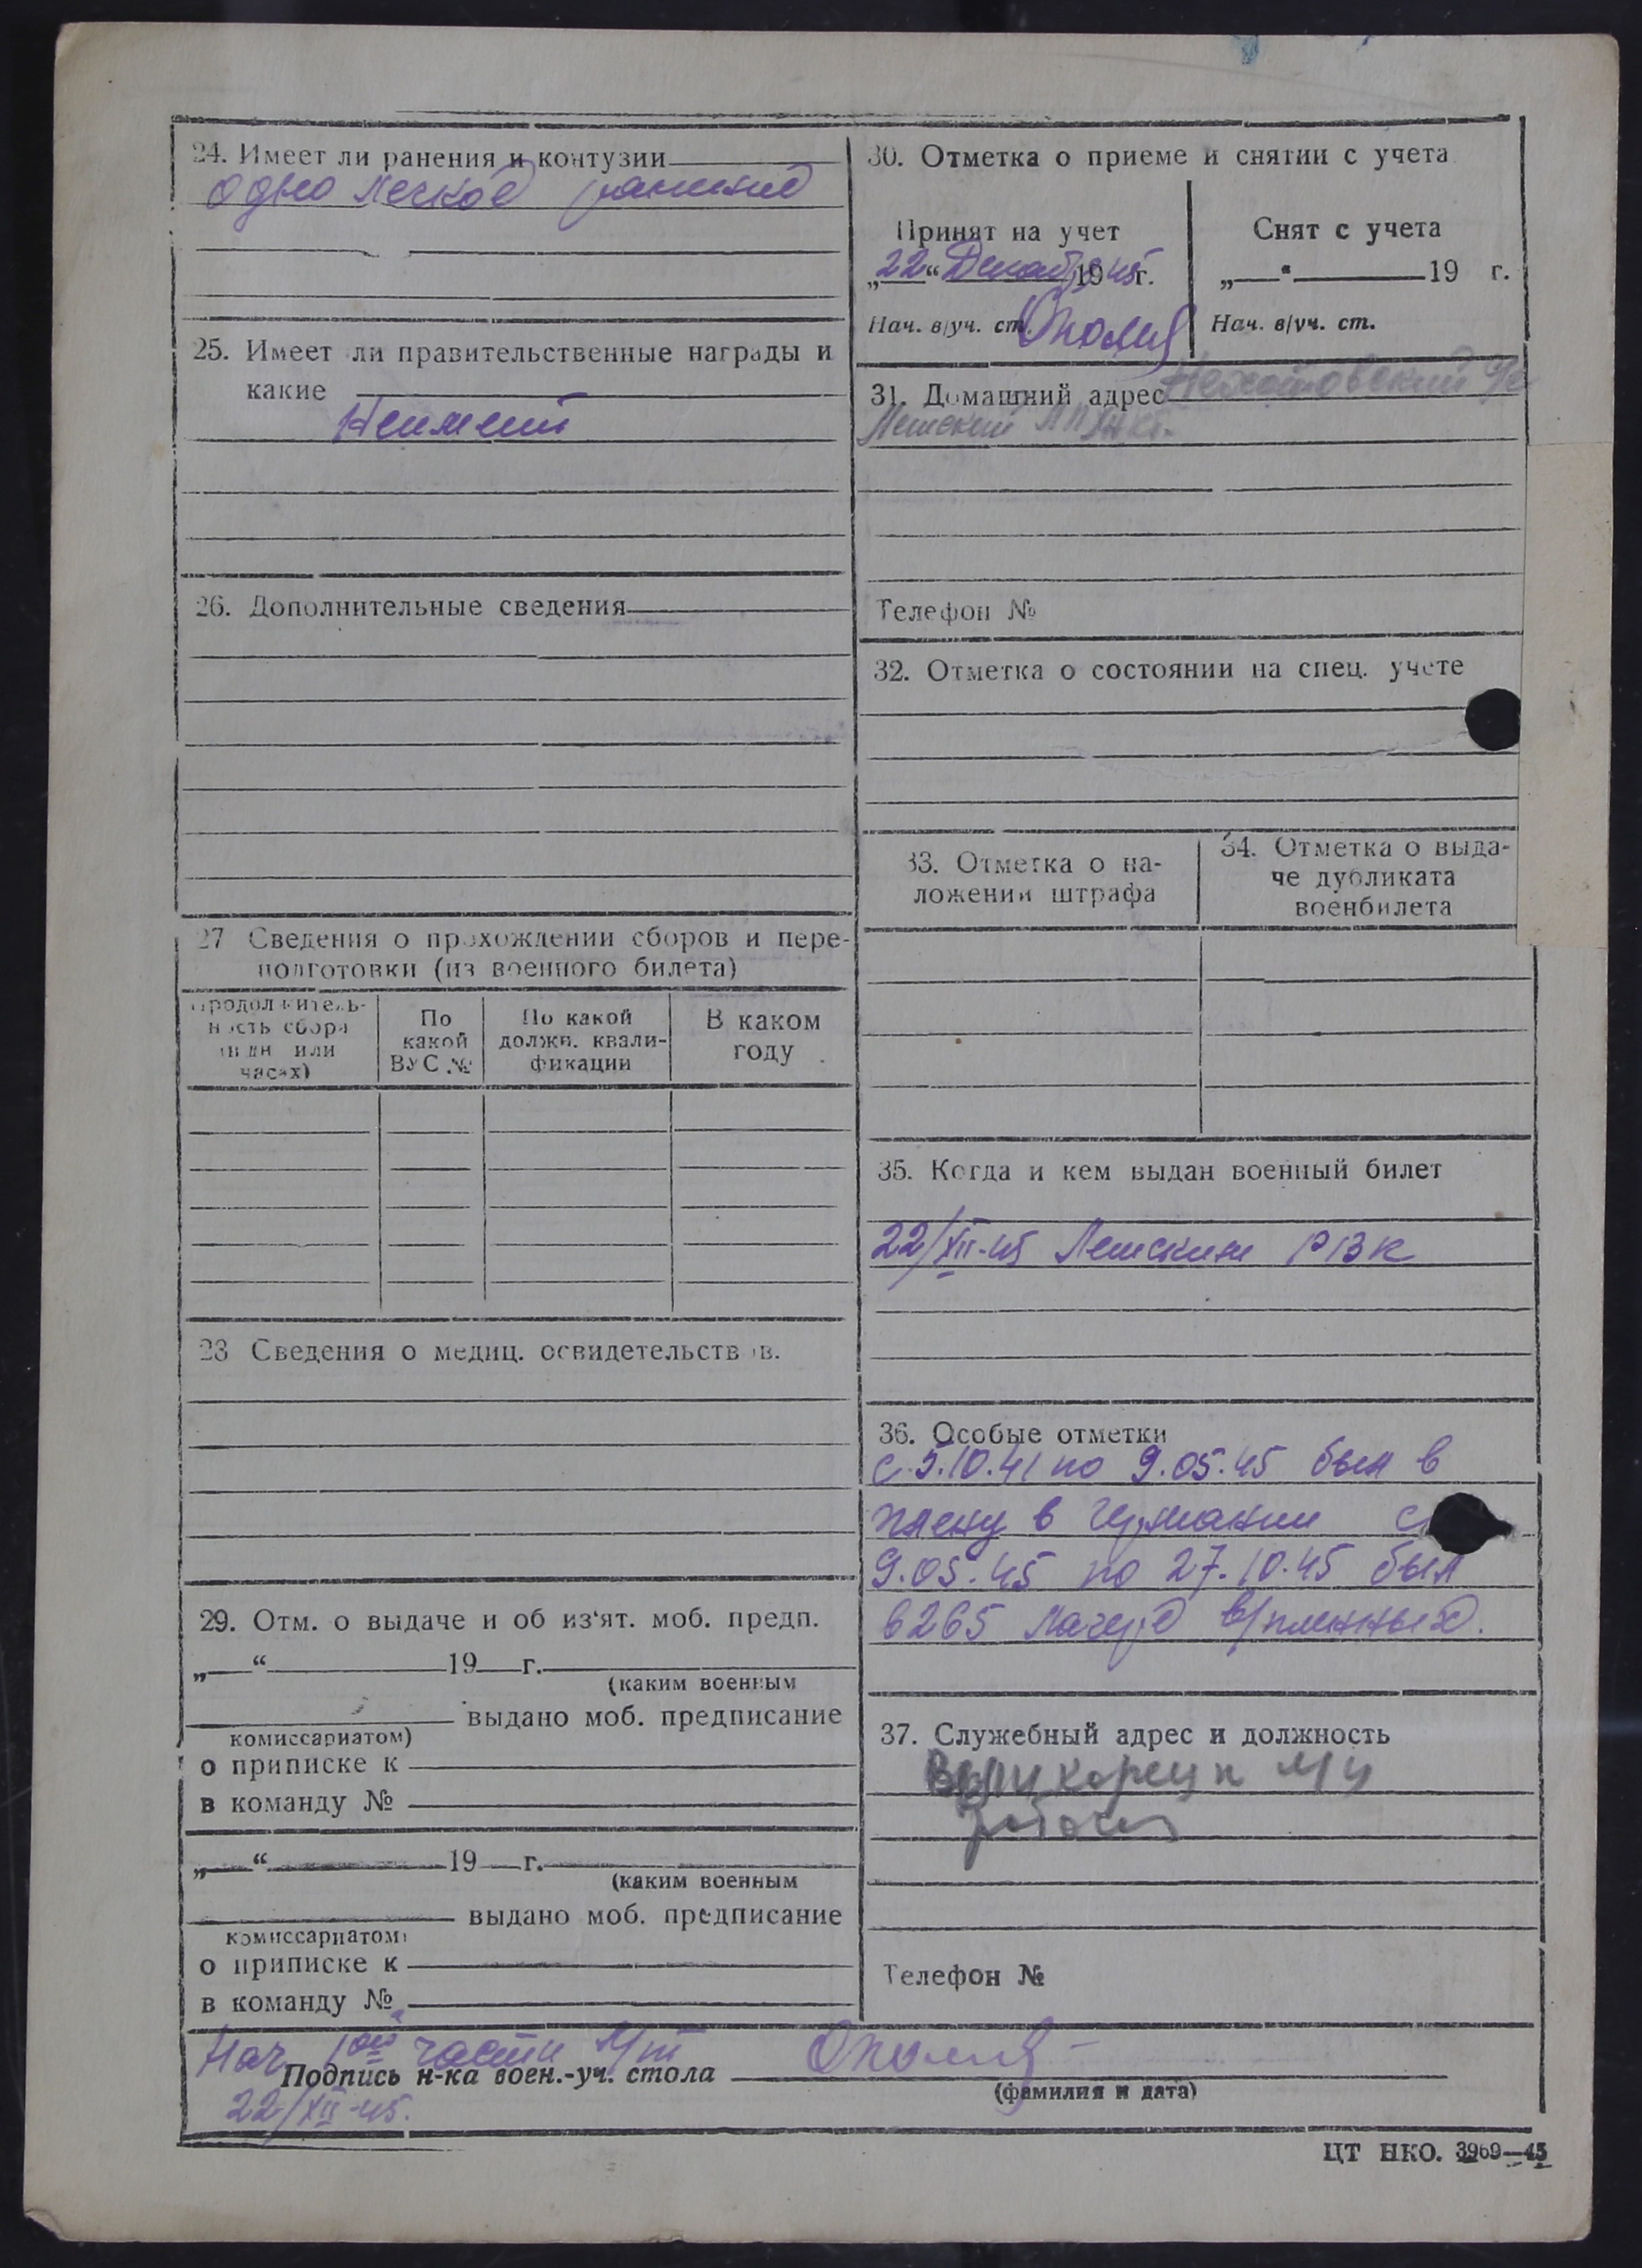 24. Имеет ли ранения и контузии
одно легкое ранение
25. Имеет ли правительственные награды и
какие
Неимеет
26. Дополнительные сведения
27 Сведения о прохождении сборов и пере-
подготовки (из военного билета)
Продолжитель-
ность сбора
(в дн. или
часах)
По
какой
ВУС №
По какой
должн. квали-
фикации
В каком
году
28 Сведения о медиц. освидетельствов.
29. Отм. о выдаче и об из‘ят. моб. предп.
„ “ 19 г.
(каким военным
выдано моб. предписание
комиссариатом)
о приписке к
в команду №
„ “ 19 г.
(каким военным
выдано моб. предписание
комиссариатом)
о приписке к
в команду №
30. Отметка о приеме и снятии с учета
Принят на учет
„22“ Декабря 1945г.
Нач. в/уч. ст.
Снят с учета
„ “ 19 г.
Нач. в/уч. ст.
31. Домашний адрес
Телефон №
32. Отметка о состоянии на спец. учете
33. Отметка о на-
ложении штрафа
34. Отметка о выда-
че дубликата
военбилета
35. Когда и кем выдан военный билет
22/XII-45 Лешским РВК
36. Особые отметки
с 5.10.41 по 9.05.45 был в
плену в германии с
9.05.45 по 27.10.45 был
в 265 лагере в/пленных.
37. Служебный адрес и должность
рабочий
Телефон №
Нач 1ой части
Подпись н-ка воен.-уч. стола
(фамилия и дата)
22/XII-45.
ЦТ НКО. 3969—45